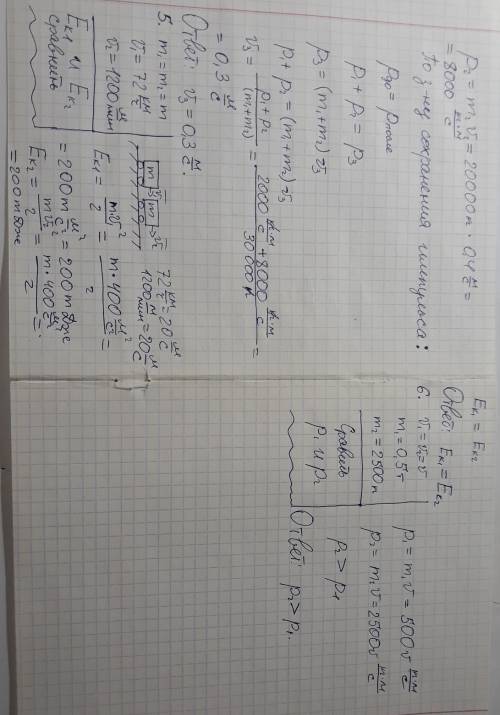 p₂ = m₂v₂ = 20000п · 0,4 м/с =
= 8000 п·м/с
По з-ну сохранения импульса:
pдо = pпосле
p₁ + p₂ = p₃
p₃ = (m₁+m₂)v₃
p₁ + p₂ = (m₁+m₂)v₃
v₃ = (p₁+p₂)/(m₁+m₂) = (2000 п·м/с + 8000 п·м/с)/30000п =
= 0,3 м/с
Ответ: v₃ = 0,3 м/с.
5. m₁ = m₂ = m
v₁ = 72 км/ч
v₂ = 1200 м/мин
Сравнить
Eк₁ и Eк₂
m v₁ m v₂
72 км/ч = 20 м/с
1200 м/мин = 20 м/с
Eк₁ = mv₁²/2 = m·400 м²/с²/2 =
= 200m м²/с² = 200m Дж
Eк₂ = mv₂²/2 = m·400 м²/с²/2 =
= 200m Дж
Eк₁ = Eк₂
Ответ: Eк₁ = Eк₂
6. v₁ = v₂ = v
m₁ = 0,5т
m₂ = 2500п
Сравнить
p₁ и p₂
p₁ = m₁v = 500v п·м/с
p₂ = m₂v = 2500v п·м/с
p₂ > p₁
Ответ: p₂ > p₁.